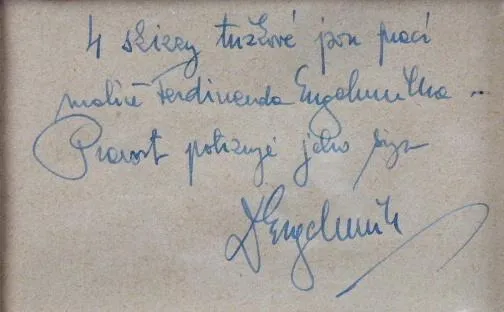 4 skizzy tužkové jsou prací
malíře Ferdinanda Engelmüllra ...
Pravost potvrzuje jeho syn
Engelmüller